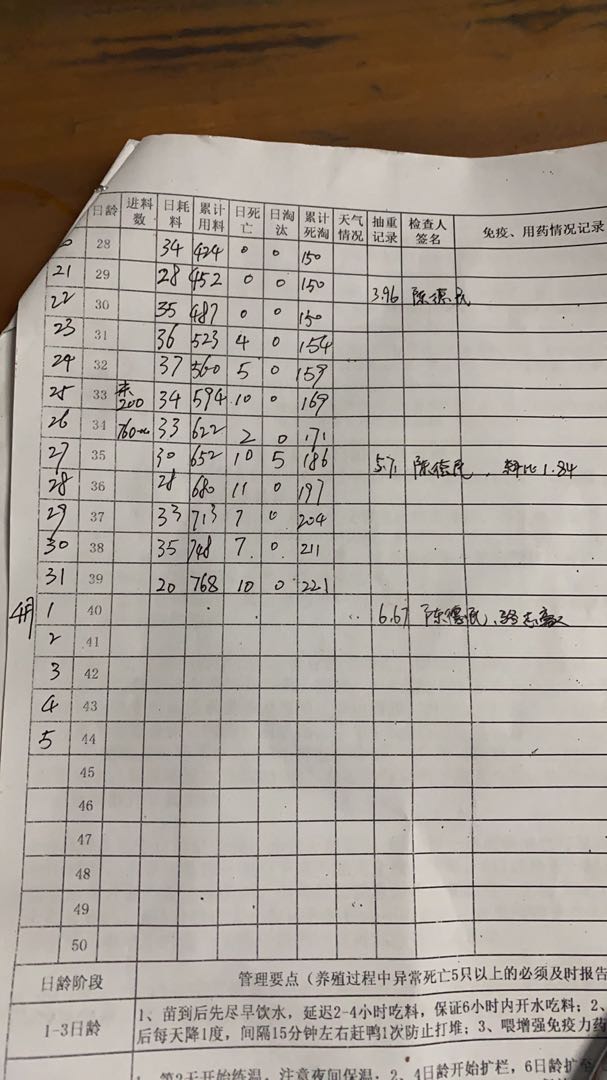 日龄 进料数 日耗料 累计用料 日死亡 日淘汰 累计死淘 天气情况 抽重记录 检查人签名 免疫、用药情况记录
28 34 424 0 0 150
21 29 28 452 0 0 150 3.96 陈德民
22 30 35 487 0 0 150
23 31 36 523 4 0 154
24 32 37 560 5 0 159
25 33 200 34 594 10 0 169
26 34 33 622 2 0 171
27 35 30 652 10 5 186 5.71 陈德民, 料比1.84
28 36 28 680 11 0 197
29 37 33 713 7 0 204
30 38 35 748 7 0 211
31 39 20 768 10 0 221
4月 1 40 6.67 陈德民、
2 41
3 42
4 43
5 44
45
46
47
48
49
50
日龄阶段 管理要点（养殖过程中异常死亡5只以上的必须及时报告
1-3日龄 1、苗到后先尽早饮水，延迟2-4小时吃料，保证6小时内开水吃料；2、
后每天降1度，间隔15分钟左右赶鸭1次防止打堆；3、喂增强免疫力药
1、第2天开始练温，注意夜间保温，2、4日龄开始扩栏，6日龄扩至